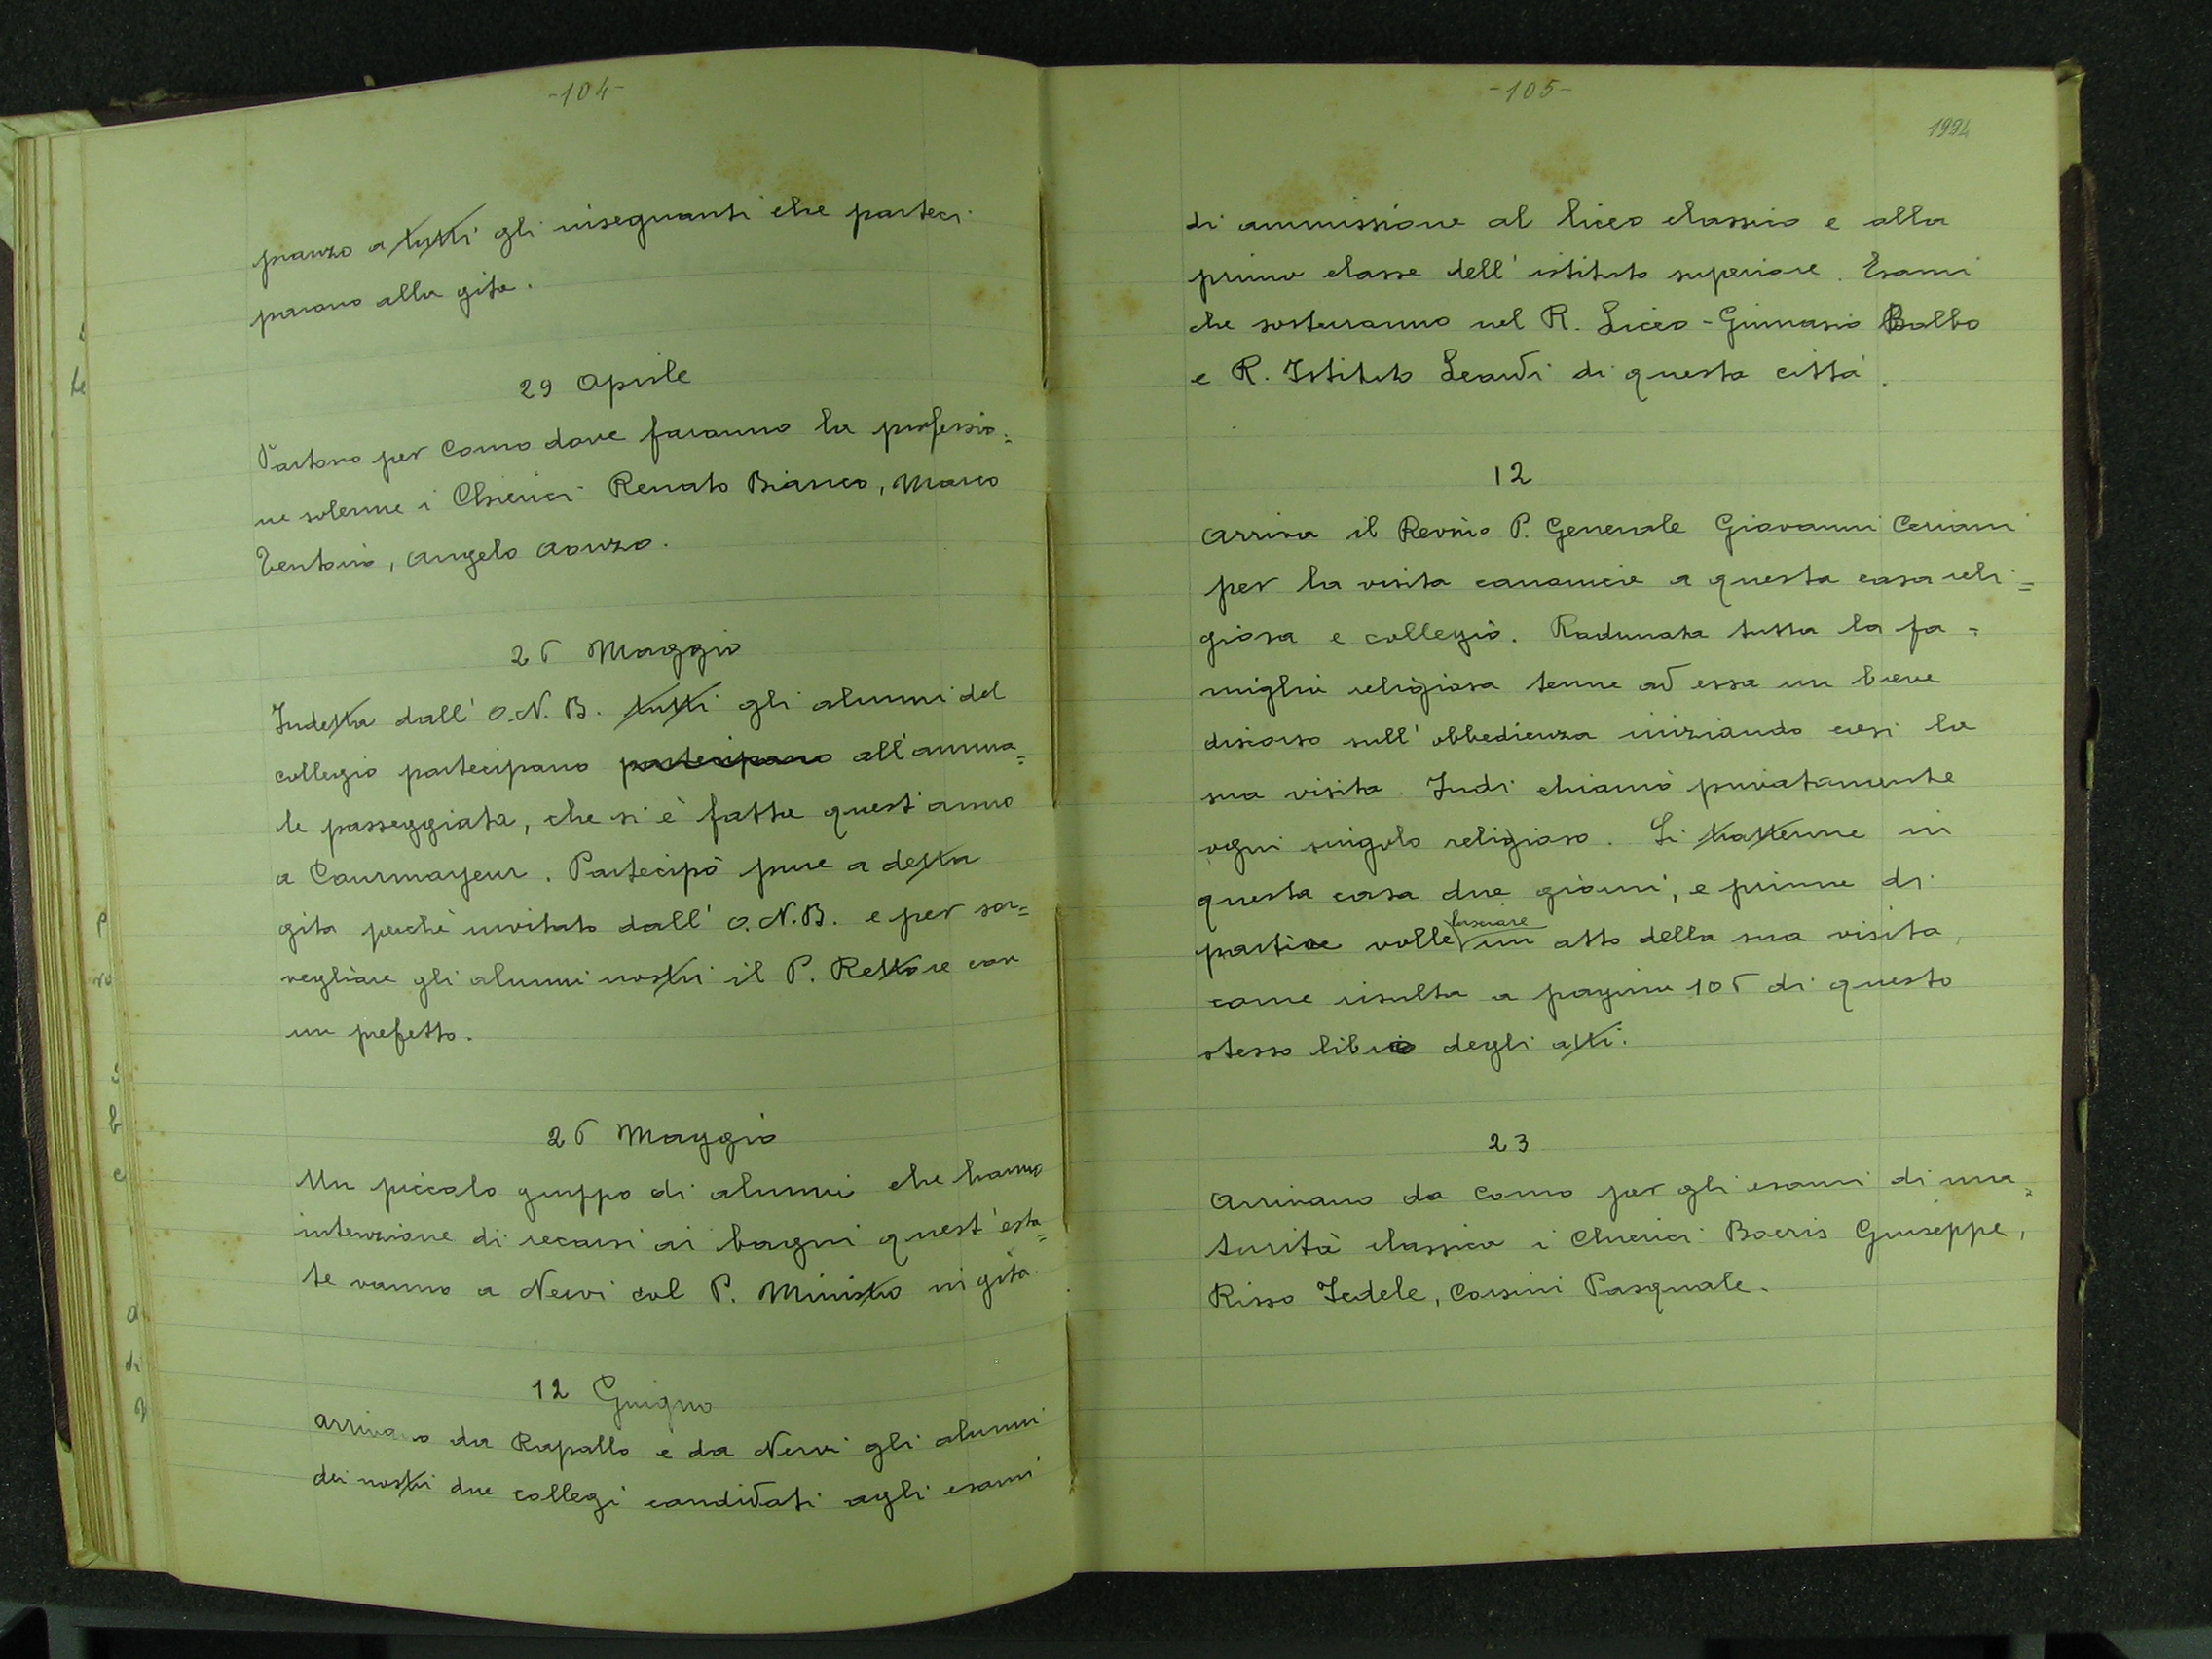 -104-
pranzo a tutti gli insegnanti che parteci
parono alla gita.
29 Aprile
Partono per Como dove faranno la professio=
ne solenne i Chierici Renato Bianco, Marco
Tentorio, Angelo Aonzo.
26 Maggio
Indetta dall' O.N.B. tutti gli alunni del
collegio partecipano partecipano all'annua=
le passeggiata, che si è fatta quest'anno
a Courmayeur. Partecipò pure a detta
gita perchè invitato dall' O.N.B. e per sor=
vegliare gli alunni nostri il P. Rettore con
un prefetto.
26 Maggio
Un piccolo gruppo di alunni che hanno
intenzione di recarsi ai bagni quest'esta=
te vanno a Nervi col P. Ministro in gita.
12 Giugno
Arrivano da Rapallo e da Nervi gli alunni
dei nostri due collegi candidati agli esami
-105-
1934
di ammissione al liceo classico e alla
prima classe dell' istituto superiore. Esami
che sosterranno nel R. Liceo-Ginnasio Balbo
e R. Istituto Leardi di questa città.
12
Arriva il Revmo P. Generale Giovanni Ceriani
per la visita canonica a questa casa reli=
giosa e collegio. Radunata tutta la fa=
miglia religiosa tenne ad essa un breve
discorso sull' obbedienza iniziando così la
sua visita. Indi chiamò privatamente
ogni singolo religioso. Si trattenne in
questa casa due giorni, e prima di
partire volle lasciare un atto della sua visita,
come risulta a pagina 106 di questo
stesso libro degli atti.
23
Arrivano da Como per gli esami di ma=
turità classica i Chierici Boeris Giuseppe,
Risso Fedele, Corsini Pasquale.